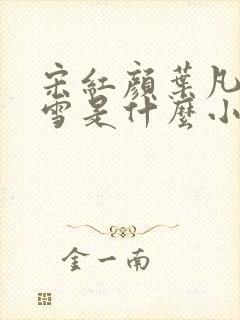 宋紅顏葉凡
雪是什麼小
金一南